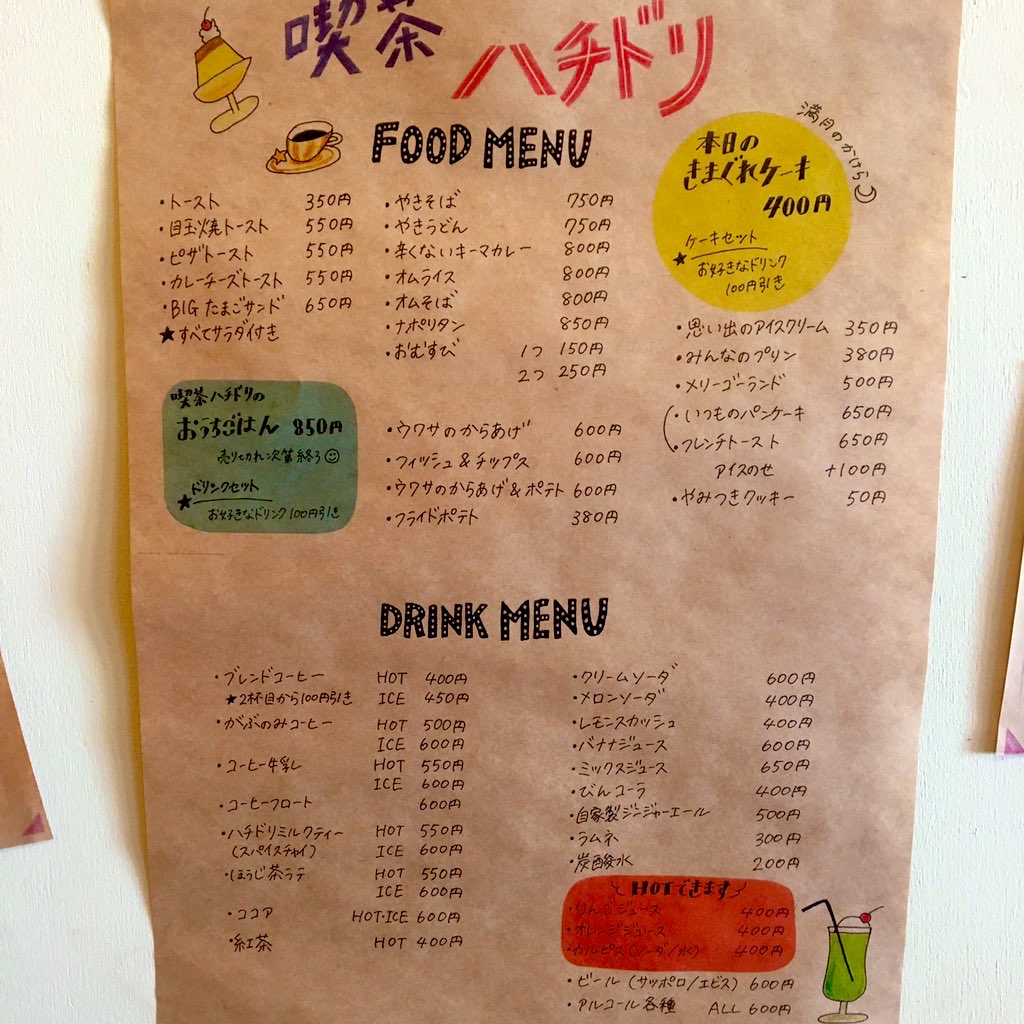 喫茶
ハチドリ
FOOD MENU
・トースト 350円
・目玉焼トースト 550円
・ピザトースト 550円
・カレーチーズトースト 550円
・BIG たまごサンド 650円
★すべてサラダ付き
喫茶ハチドリの
おうちごはん 850円
売り切れ次第終了☺
★ドリンクセット
お好きなドリンク100円引き
・やきそば 750円
・やきうどん 750円
・辛くないキーマカレー 800円
・オムライス 800円
・オムそば 800円
・ナポリタン 850円
・おむすび 1つ 150円
2つ 250円
・ウワサのからあげ 600円
・フィッシュ&チップス 600円
・ウワサのからあげ&ポテト 600円
・フライドポテト 380円
満月のかけら
本日の
きまぐれケーキ
400円
★ケーキセット
お好きなドリンク
100円引き
・思い出のアイスクリーム 350円
・みんなのプリン 380円
・メリーゴーランド 500円
・いつものパンケーキ 650円
・フレンチトースト 650円
アイスのせ +100円
・やみつきクッキー 50円
DRINK MENU
・ブレンドコーヒー HOT 400円
★2杯目から100円引き ICE 450円
・がぶのみコーヒー HOT 500円
ICE 600円
・コーヒー牛乳 HOT 550円
ICE 600円
・コーヒーフロート 600円
・ハチドリミルクティー HOT 550円
(スパイスチャイ) ICE 600円
・ほうじ茶ラテ HOT 550円
ICE 600円
・ココア HOT・ICE 600円
・紅茶 HOT 400円
・クリームソーダ 600円
・メロンソーダ 400円
・レモンスカッシュ 400円
・バナナジュース 600円
・ミックスジュース 650円
・びんコーラ 400円
・自家製ジンジャーエール 500円
・ラムネ 300円
・炭酸水 200円
HOTできます
・りんごジュース 400円
・オレンジジュース 400円
・カルピス(ソーダ/水) 400円
・ビール(サッポロ/エビス) 600円
・アルコール各種 ALL 600円